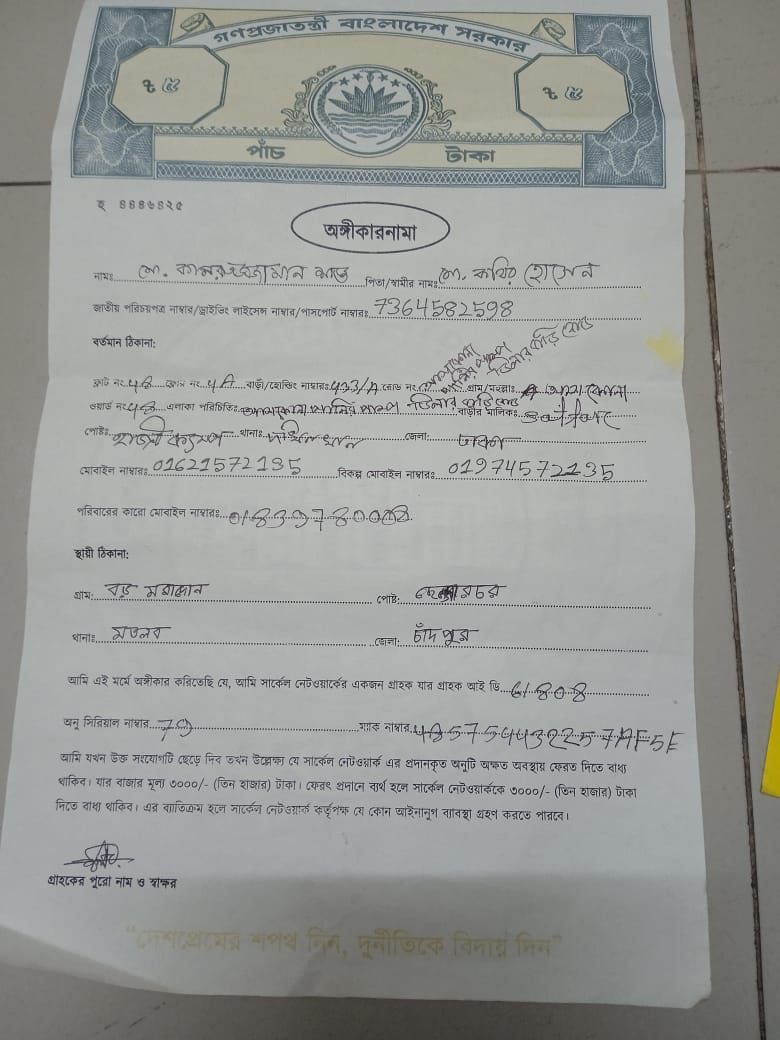 গণপ্রজাতন্ত্রী বাংলাদেশ সরকার
৳ ৫ ৳ ৫
পাঁচ টাকা
অঙ্গীকারনামা
নামঃ মো. কামরুজ্জামান পিতা/স্বামীর নামঃ মো. কবির হোসেন
জাতীয় পরিচয়পত্র নাম্বার/ড্রাইভিং লাইসেন্স নাম্বার/পাসপোর্ট নাম্বারঃ 7364582598
বর্তমান ঠিকানা:
ফ্লাট নং 4B ফ্লোর নং 4A বাড়ী/হোল্ডিং নাম্বারঃ 433/A রোড নং গ্রাম/মহল্লাঃ
ওয়ার্ড নং 48 এলাকা পরিচিতিঃ পানির পাম্প বাড়ীর মালিকঃ
পোষ্টঃ থানাঃ দক্ষিণ খান জেলা: ঢাকা
মোবাইল নাম্বারঃ 01621572135 বিকল্প মোবাইল নাম্বারঃ 01974572135
পরিবারের কারো মোবাইল নাম্বারঃ
স্থায়ী ঠিকানা:
গ্রাম: বড় পোষ্ট:
থানাঃ মতলব জেলা: চাঁদপুর
আমি এই মর্মে অঙ্গীকার করিতেছি যে, আমি সার্কেল নেটওয়ার্কের একজন গ্রাহক যার গ্রাহক আই ডি 61808
অনু সিরিয়াল নাম্বার 79 ম্যাক নাম্বার 485754432257AF5E
আমি যখন উক্ত সংযোগটি ছেড়ে দিব তখন উল্লেক্ষ্য যে সার্কেল নেটওয়ার্ক এর প্রদানকৃত অনুটি অক্ষত অবস্থায় ফেরত দিতে বাধ্য
থাকিব। যার বাজার মূল্য ৩০০০/- (তিন হাজার) টাকা। ফেরৎ প্রদানে ব্যর্থ হলে সার্কেল নেটওয়ার্ককে ৩০০০/- (তিন হাজার) টাকা
দিতে বাধ্য থাকিব। এর ব্যতিক্রম হলে সার্কেল নেটওয়ার্ক কর্তৃপক্ষ যে কোন আইনানুগ ব্যাবস্থা গ্রহণ করতে পারবে।
গ্রাহকের পুরো নাম ও স্বাক্ষর
"দেশপ্রেমের শপথ নিন, দুর্নীতিকে বিদায় দিন"